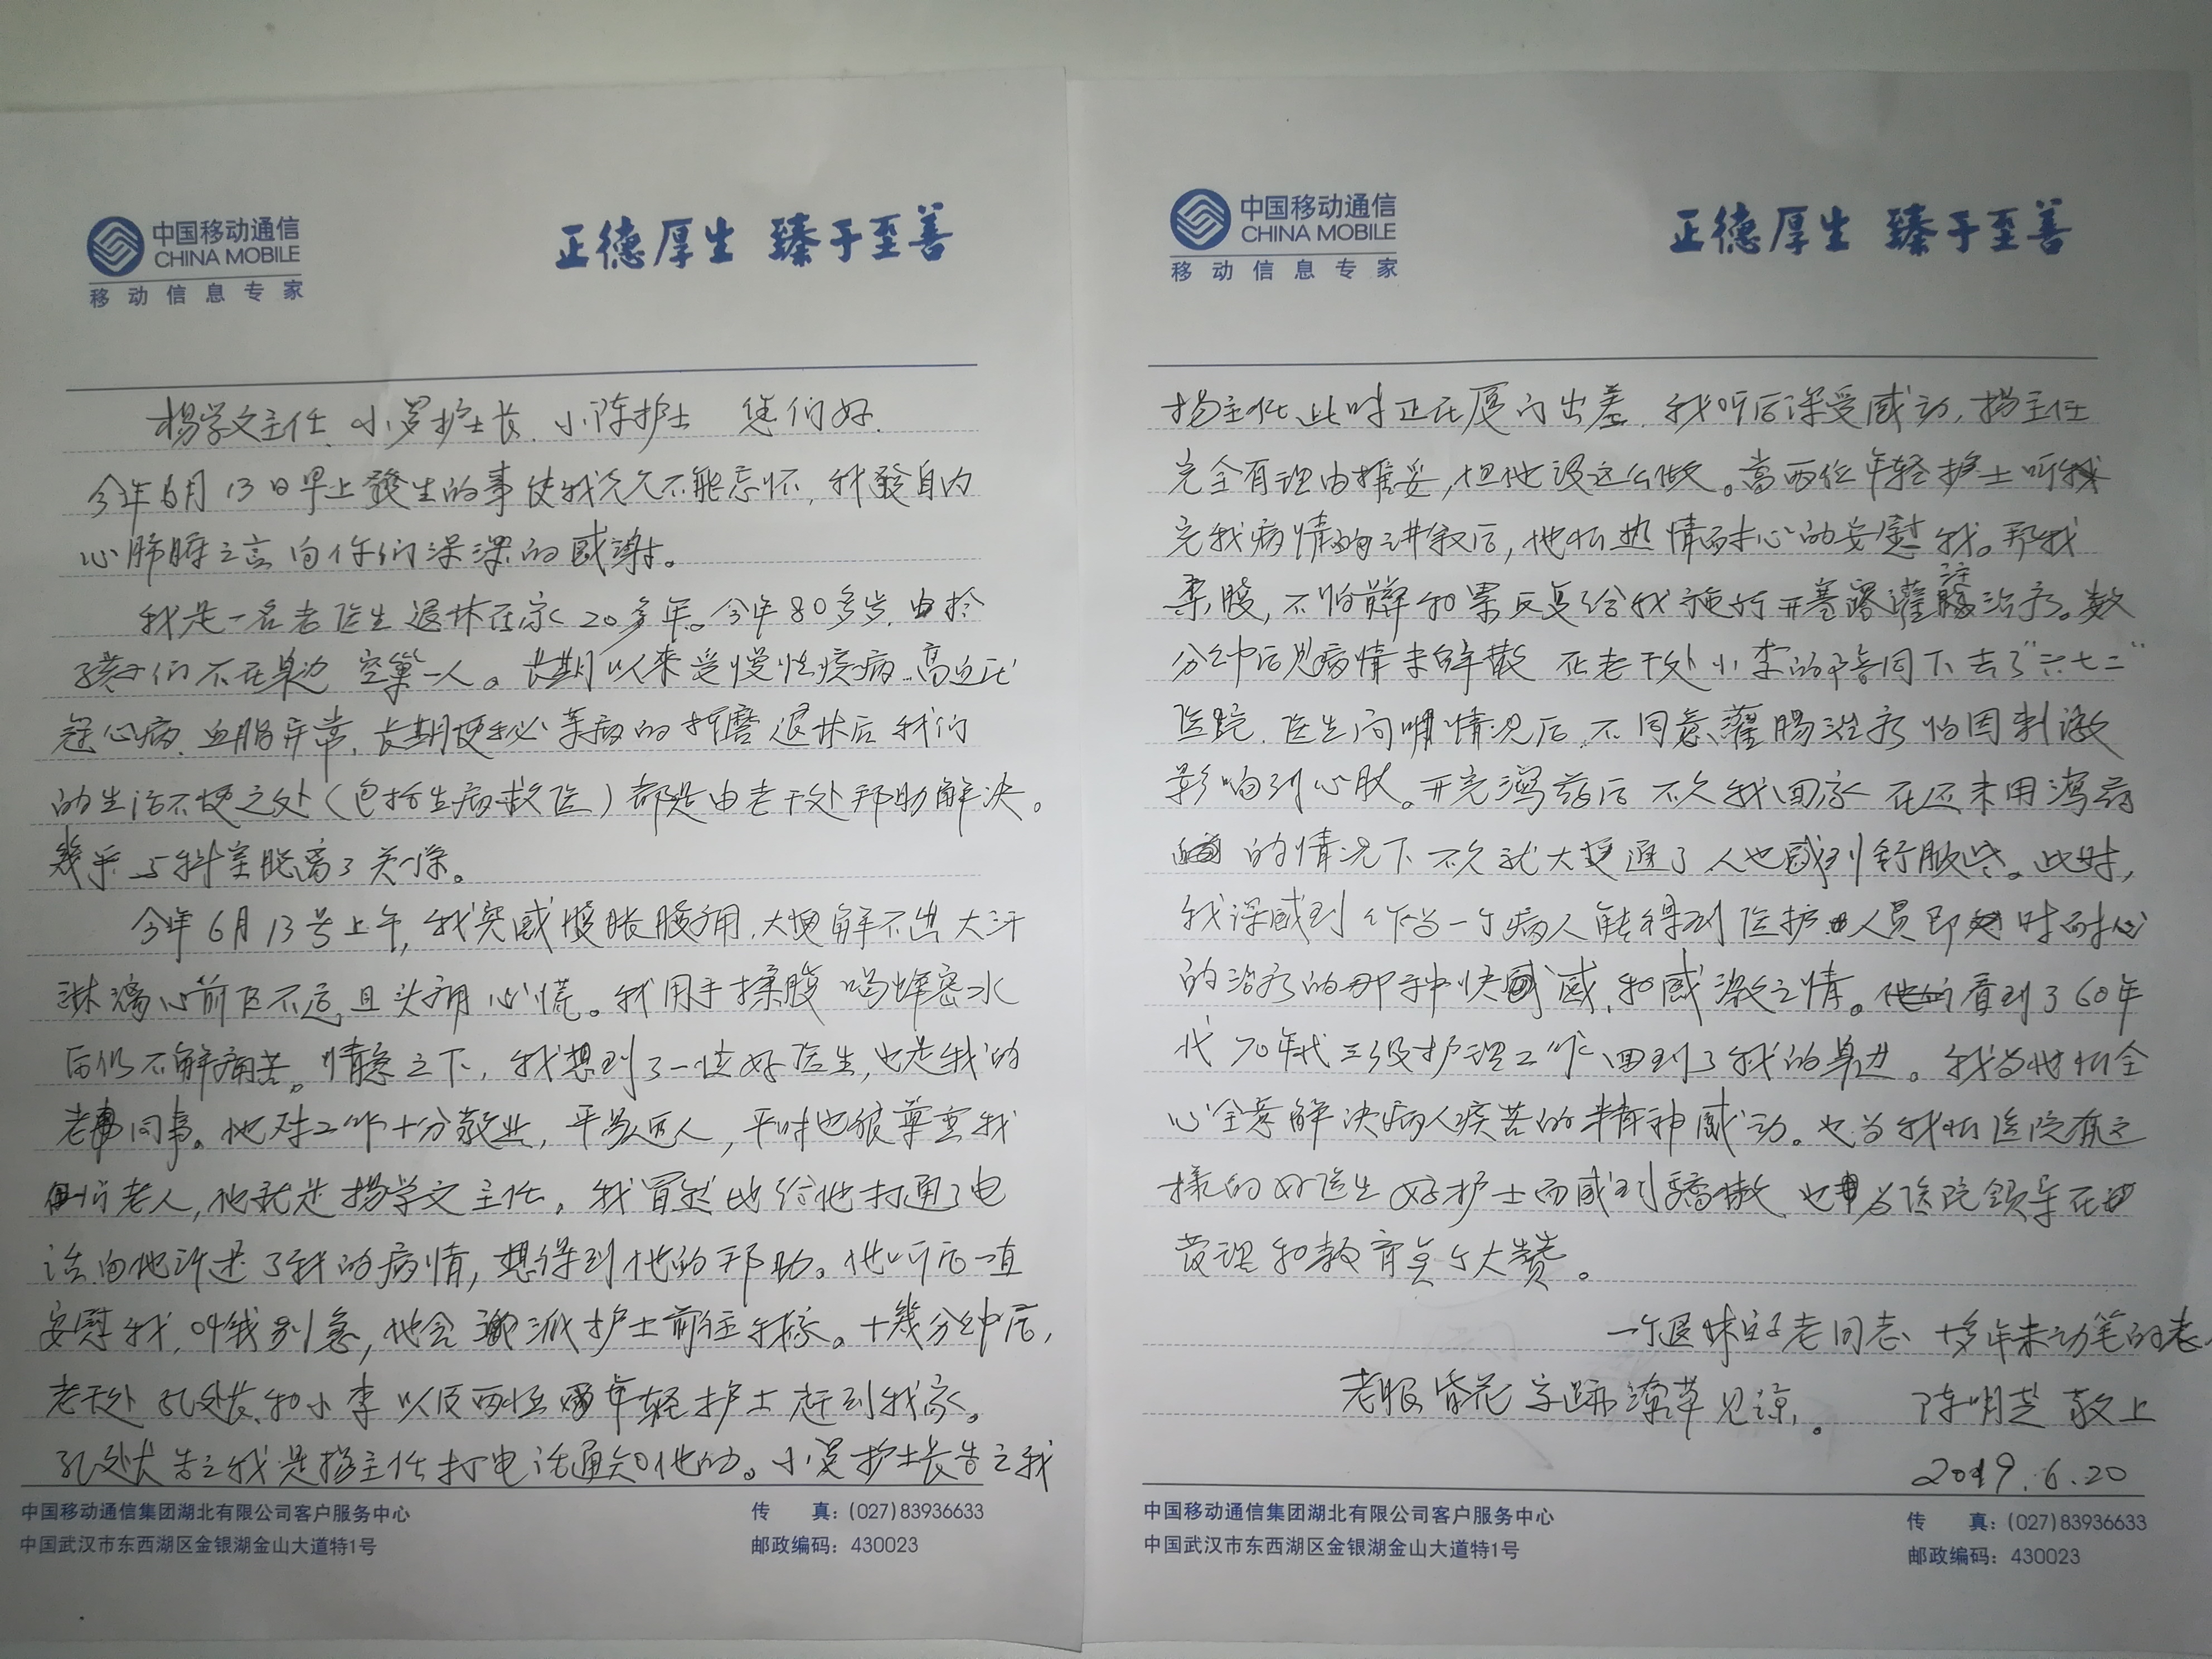 中国移动通信
CHINA MOBILE
移动信息专家
正德厚生 臻于至善
杨学文主任、小罗护士长、小陈护士 您们好.
今年6月13日早上發生的事使我久久不能忘怀,我發自内
心肺腑之言向你们深深的感谢。
我是一名老医生退休在家20多年。今年80多岁.由於
孩子们不在身边 空巢一人。长期以来受慢性疾病.高血压
冠心病.血脂异常.长期便秘等病的折磨 退休后我们
的生活不便之处(包括生病救医)都是由老干处帮助解决。
幾乎与科室脱离了关係。
今年6月13号上午,我突感腹胀腹痛.大便解不出大汗
淋漓心前区不适且头痛心慌。我用手揉腹 喝蜂密水
后仍不解痛苦。情急之下,我想到了一位好医生,也是我的
老同事。他对工作十分敬业,平易近人,平时也很尊重我
们老人,他就是杨学文主任。我冒然地给他打通了电
话向他讲述了我的病情,想得到他的帮助。他听后一直
安慰我,叫我别急,他会派护士前往我家。十幾分钟后,
老干处孔处长和小李以及两位年轻护士赶到我家。
孔处长告之我是杨主任打电话通知他的。小罗护士长告之我
中国移动通信集团湖北有限公司客户服务中心
中国武汉市东西湖区金银湖金山大道特1号
传 真:(027)83936633
邮政编码:430023
中国移动通信
CHINA MOBILE
移动信息专家
正德厚生 臻于至善
杨主任此时正在厦门出差.我听后深受感动,杨主任
完全有理由推妥,但他没这么做。当两位年轻护士听
完我病情的讲叙后,他们热情耐心的安慰我。帮我
柔腹,不怕髒和累反复给我施行开塞露灌注治疗。数
分钟后见病情未解散 在老干处小李的陪同下去了"六七二"
医院.医生问明情况后.不同意灌肠治疗怕因刺激
影响到心肽。开完泻药后不久我回家 在还未用泻药
的情况下不久就大便通了人也感到舒服些。此时,
我深感到作为一个病人能得到医护人员即时耐心
的治疗的那种快感,和感激之情。看到了60年
代70年代三级护理工作回到了我的身边。我为他们全
心全意解决病人疾苦的精神感动。也为我们医院有这
樣的好医生好护士而感到骄傲 也为医院领导在
管理和教育美个大赞。
一个退休老同志、十多年未动笔的老人
老眼昏花字跡潦草见谅。 陈明芝敬上
2019.6.20
中国移动通信集团湖北有限公司客户服务中心
中国武汉市东西湖区金银湖金山大道特1号
传 真:(027)83936633
邮政编码:430023